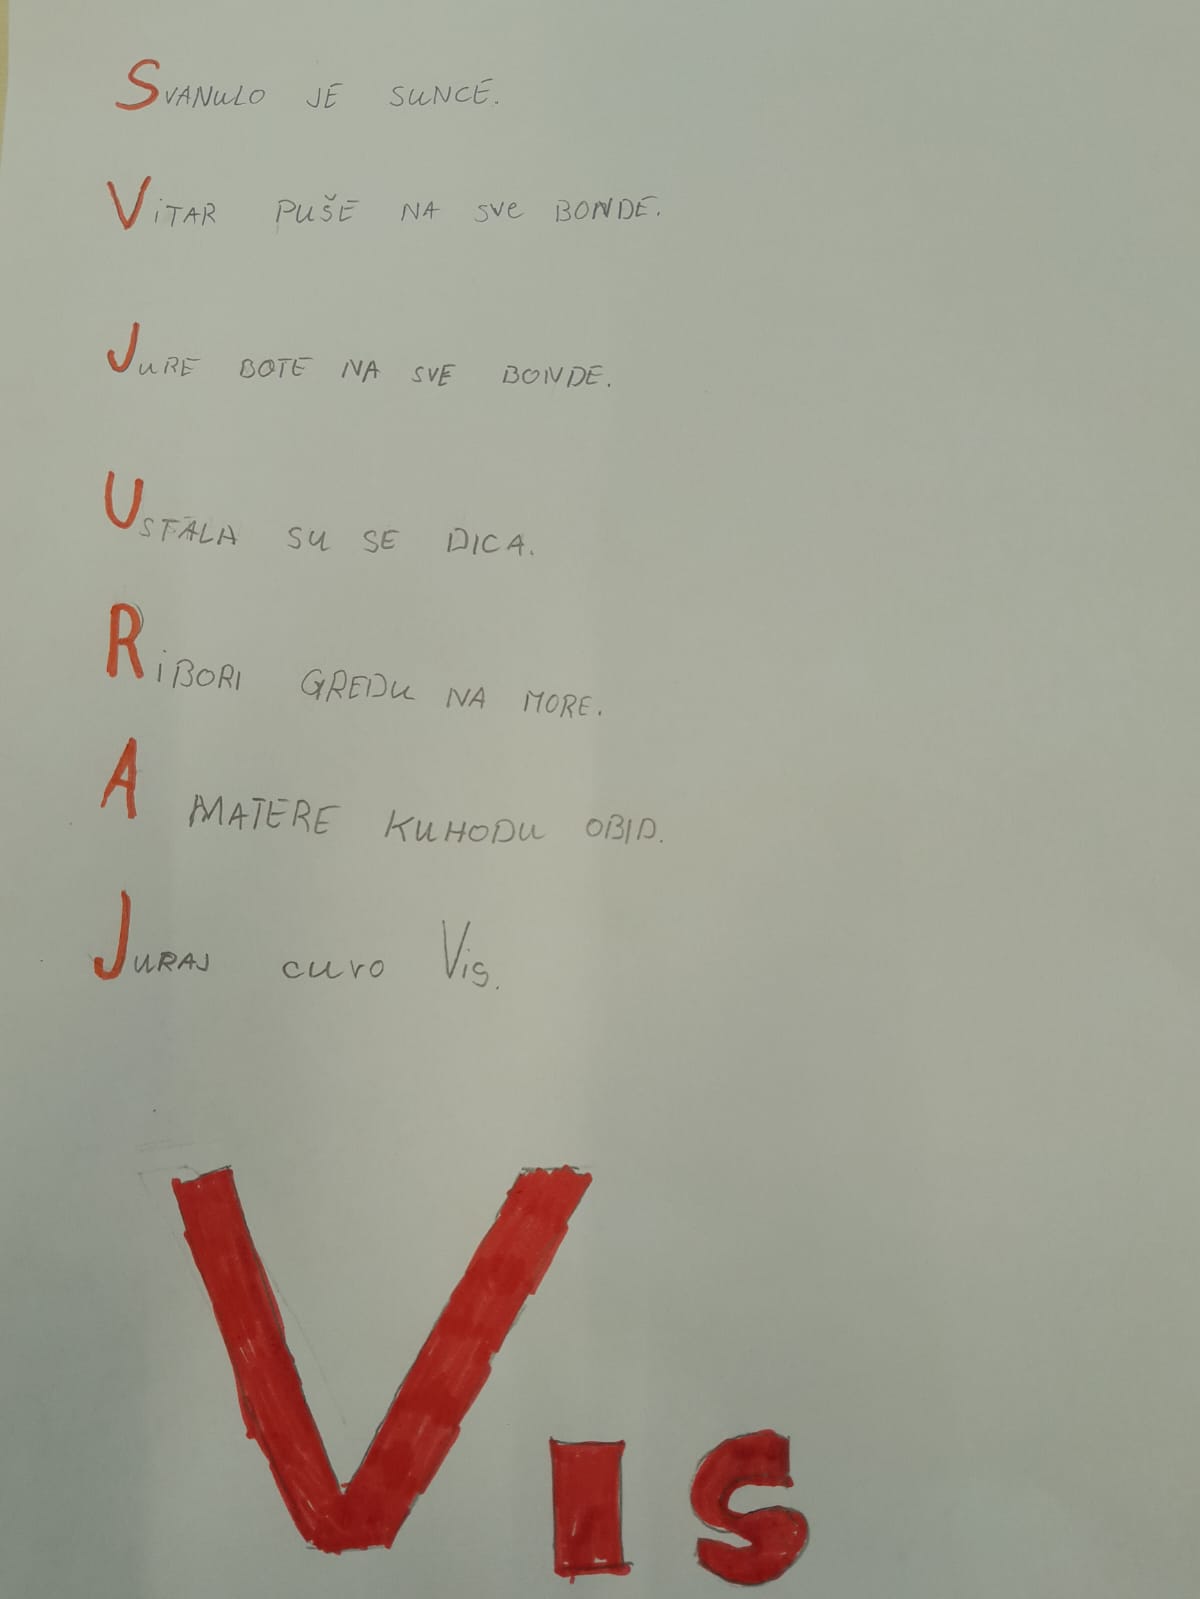 SVANULO JE SUNCE.
VITAR PUŠE NA SVE BONDE.
JURE BOTE NA SVE BONDE.
USTALA SU SE DICA.
RIBORI GREDU NA MORE.
A MATERE KUHODU OBID.
JURAJ CUVO VIS.
VIS